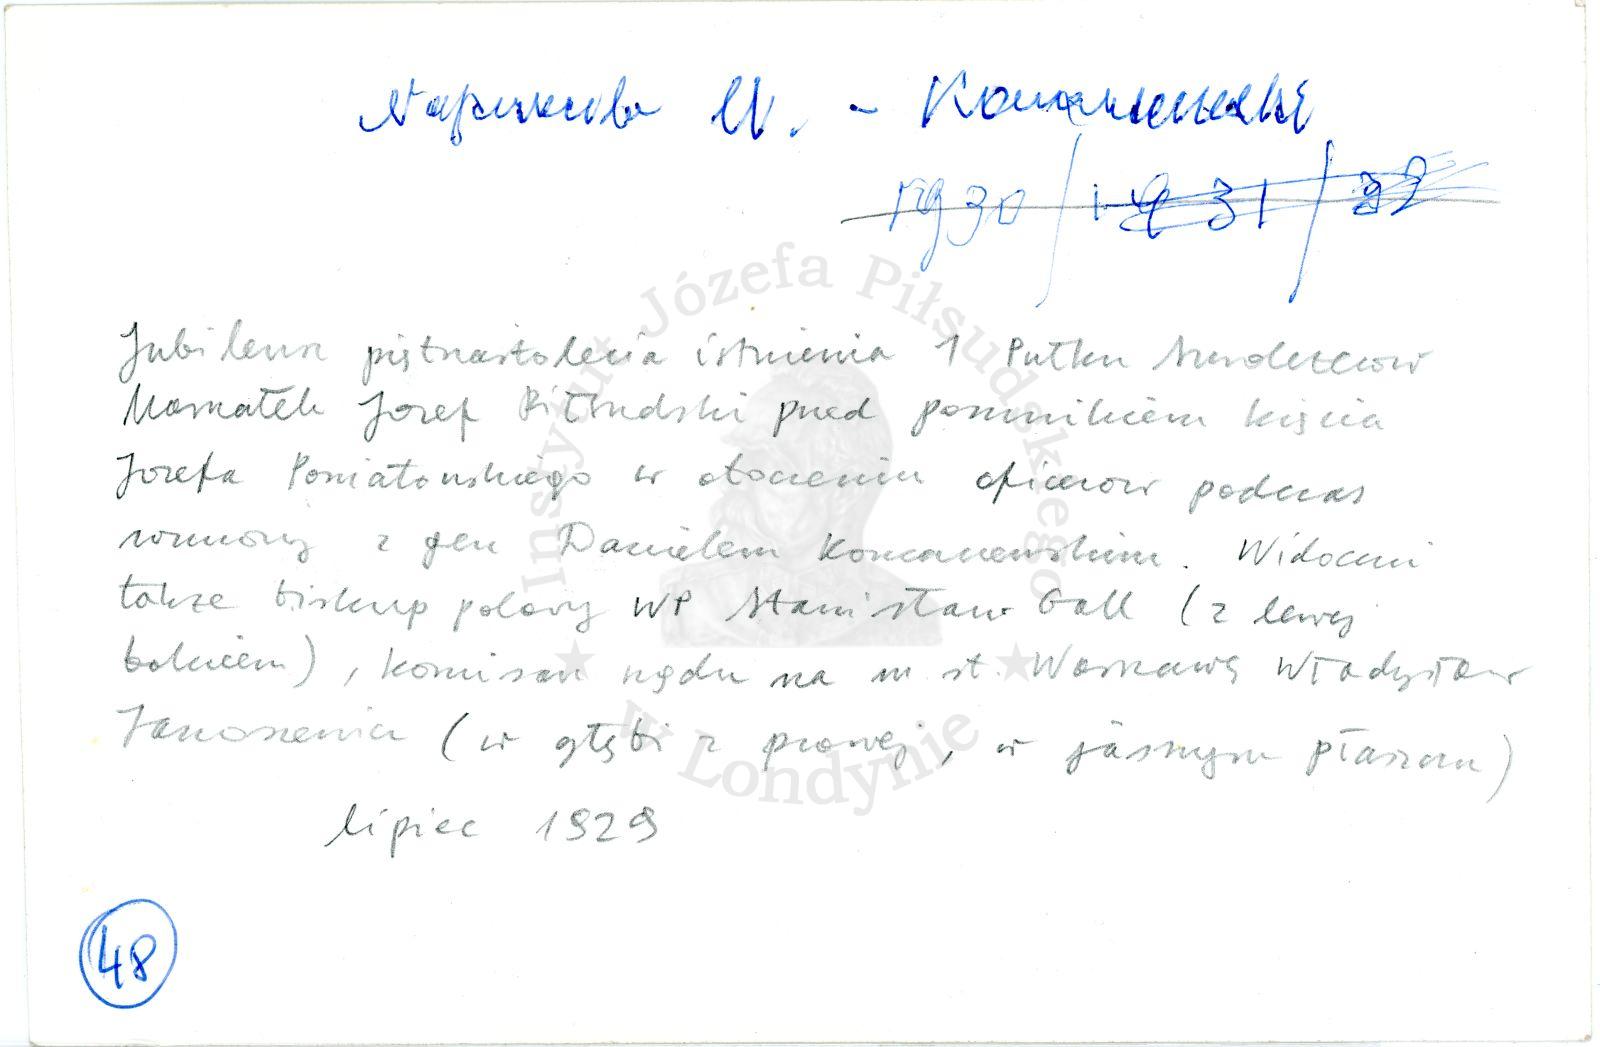 Naprzeciw M. - Konarzewski
1930/1931/32
Jubileusz piętnastolecia istnienia 1 Pułku Szwoleżerów
Marszałek Józef Piłsudski przed pomnikiem księcia
Józefa Poniatowskiego w otoczeniu oficerów podczas
rozmowy z gen Danielem Konarzewskim. Widoczni
także biskup polowy WP Stanisław Gall (z lewej
bokiem), komisarz rządu na m st. Warszawę Władysław
Jaroszewicz (w głębi z prawej, w jasnym płaszczu)
lipiec 1929
48
Instytut Józefa Piłsudskiego
w Londynie